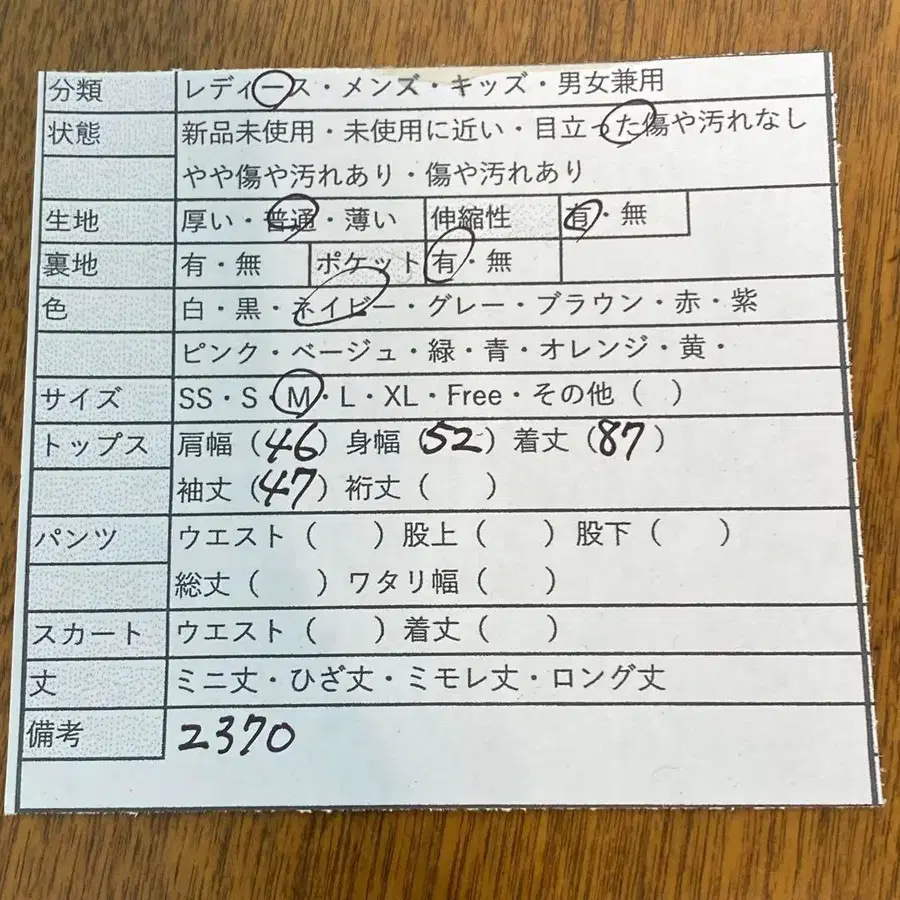 分類 レディース・メンズ・キッズ・男女兼用
状態 新品未使用・未使用に近い・目立った傷や汚れなし
やや傷や汚れあり・傷や汚れあり
生地 厚い・普通・薄い 伸縮性 有・無
裏地 有・無 ポケット 有・無
色 白・黒・ネイビー・グレー・ブラウン・赤・紫
ピンク・ベージュ・緑・青・オレンジ・黄・
サイズ SS・S・M・L・XL・Free・その他( )
トップス 肩幅(46) 身幅(52) 着丈(87)
袖丈(47) 裄丈( )
パンツ ウエスト( ) 股上( ) 股下( )
総丈( ) ワタリ幅( )
スカート ウエスト( ) 着丈( )
丈 ミニ丈・ひざ丈・ミモレ丈・ロング丈
備考 2370